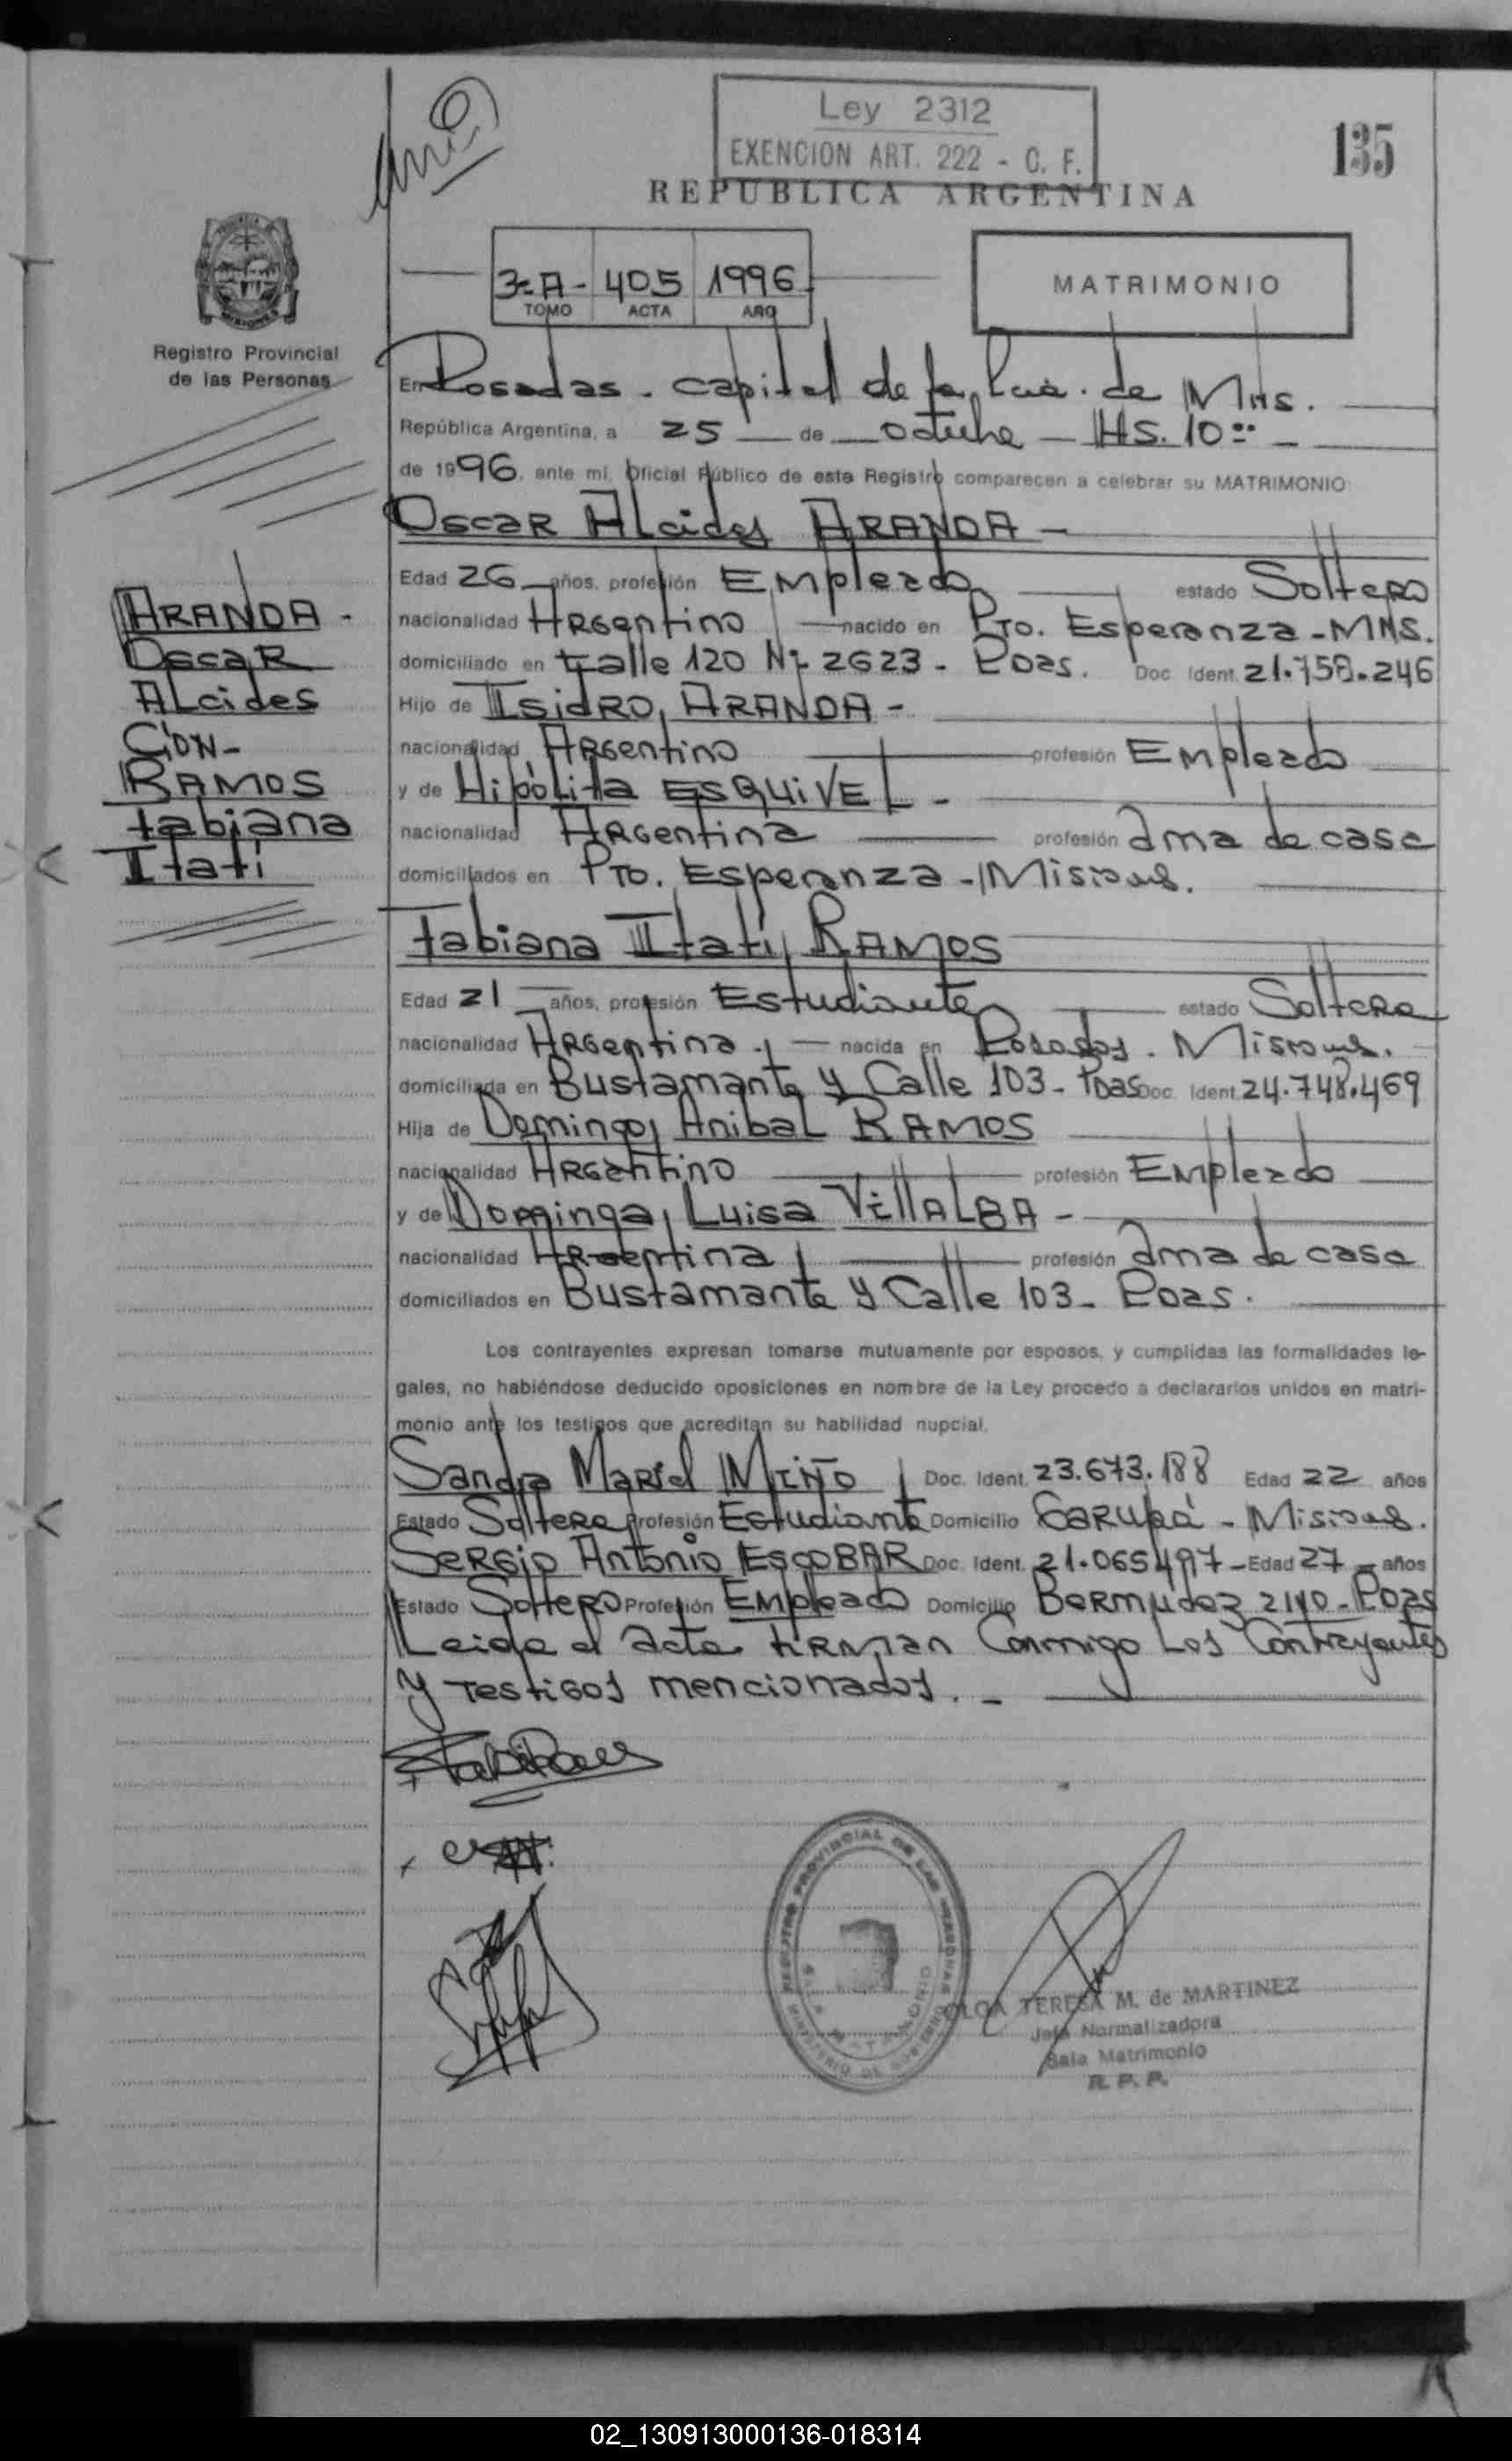 Ley 2312
EXENCION ART. 222 - C. F.
135
REPUBLICA ARGENTINA
3-A- 405 1996
TOMO ACTA AÑO
MATRIMONIO
Registro Provincial
de las Personas
En Posadas - capital de la Pcia. de Mns.
República Argentina, a 25 de octubre - HS. 10:
de 1996, ante mi, Oficial Público de este Registro comparecen a celebrar su MATRIMONIO:
Oscar Alcides ARANDA -
Edad 26 años, profesión Empleado estado Soltero
nacionalidad Argentino nacido en Pto. Esperanza - MNS.
domiciliado en Calle 120 Nº 2623 - Pdas. Doc. Ident. 21.758.246
Hijo de Isidro, ARANDA -
nacionalidad Argentino profesión Empleado
y de Hipólita ESQUIVEL -
nacionalidad Argentina profesión ama de casa
domiciliados en Pto. Esperanza - Misiones.
ARANDA -
Oscar
Alcides
Con -
RAMOS
Fabiana
Itatí
Fabiana Itatí, RAMOS
Edad 21 años, profesión Estudiante estado Soltera
nacionalidad Argentina. nacida en Posadas. Misiones.
domiciliada en Bustamante y Calle 103 - Pdas Doc. Ident. 24.748.469
Hija de Domingo, Anibal RAMOS
nacionalidad Argentino profesión Empleado
y de Dominga, Luisa VillALBA -
nacionalidad Argentina profesión ama de casa
domiciliados en Bustamante y Calle 103 - Pdas.
Los contrayentes expresan tomarse mutuamente por esposos, y cumplidas las formalidades le-
gales, no habiéndose deducido oposiciones en nombre de la Ley procedo a declararlos unidos en matri-
monio ante los testigos que acreditan su habilidad nupcial.
Sandra Mariel MIÑO Doc. Ident. 23.673.188 Edad 22 años
Estado Soltera Profesión Estudiante Domicilio Garupá - Misiones.
Sergio Antonio ESCOBAR Doc. Ident. 21.065497 - Edad 27 - años
Estado Soltero Profesión Empleado Domicilio Bermudez 2140 - Pdas
Leida el acta firman Conmigo Los Contrayentes
y testigos mencionados. -
REGISTRO PROVINCIAL DE LAS PERSONAS
SALA MATRIMONIO
MINISTERIO DE GOBIERNO
OLGA TERESA M. de MARTINEZ
Jefa Normalizadora
Sala Matrimonio
R. P. P.
02_130913000136-018314